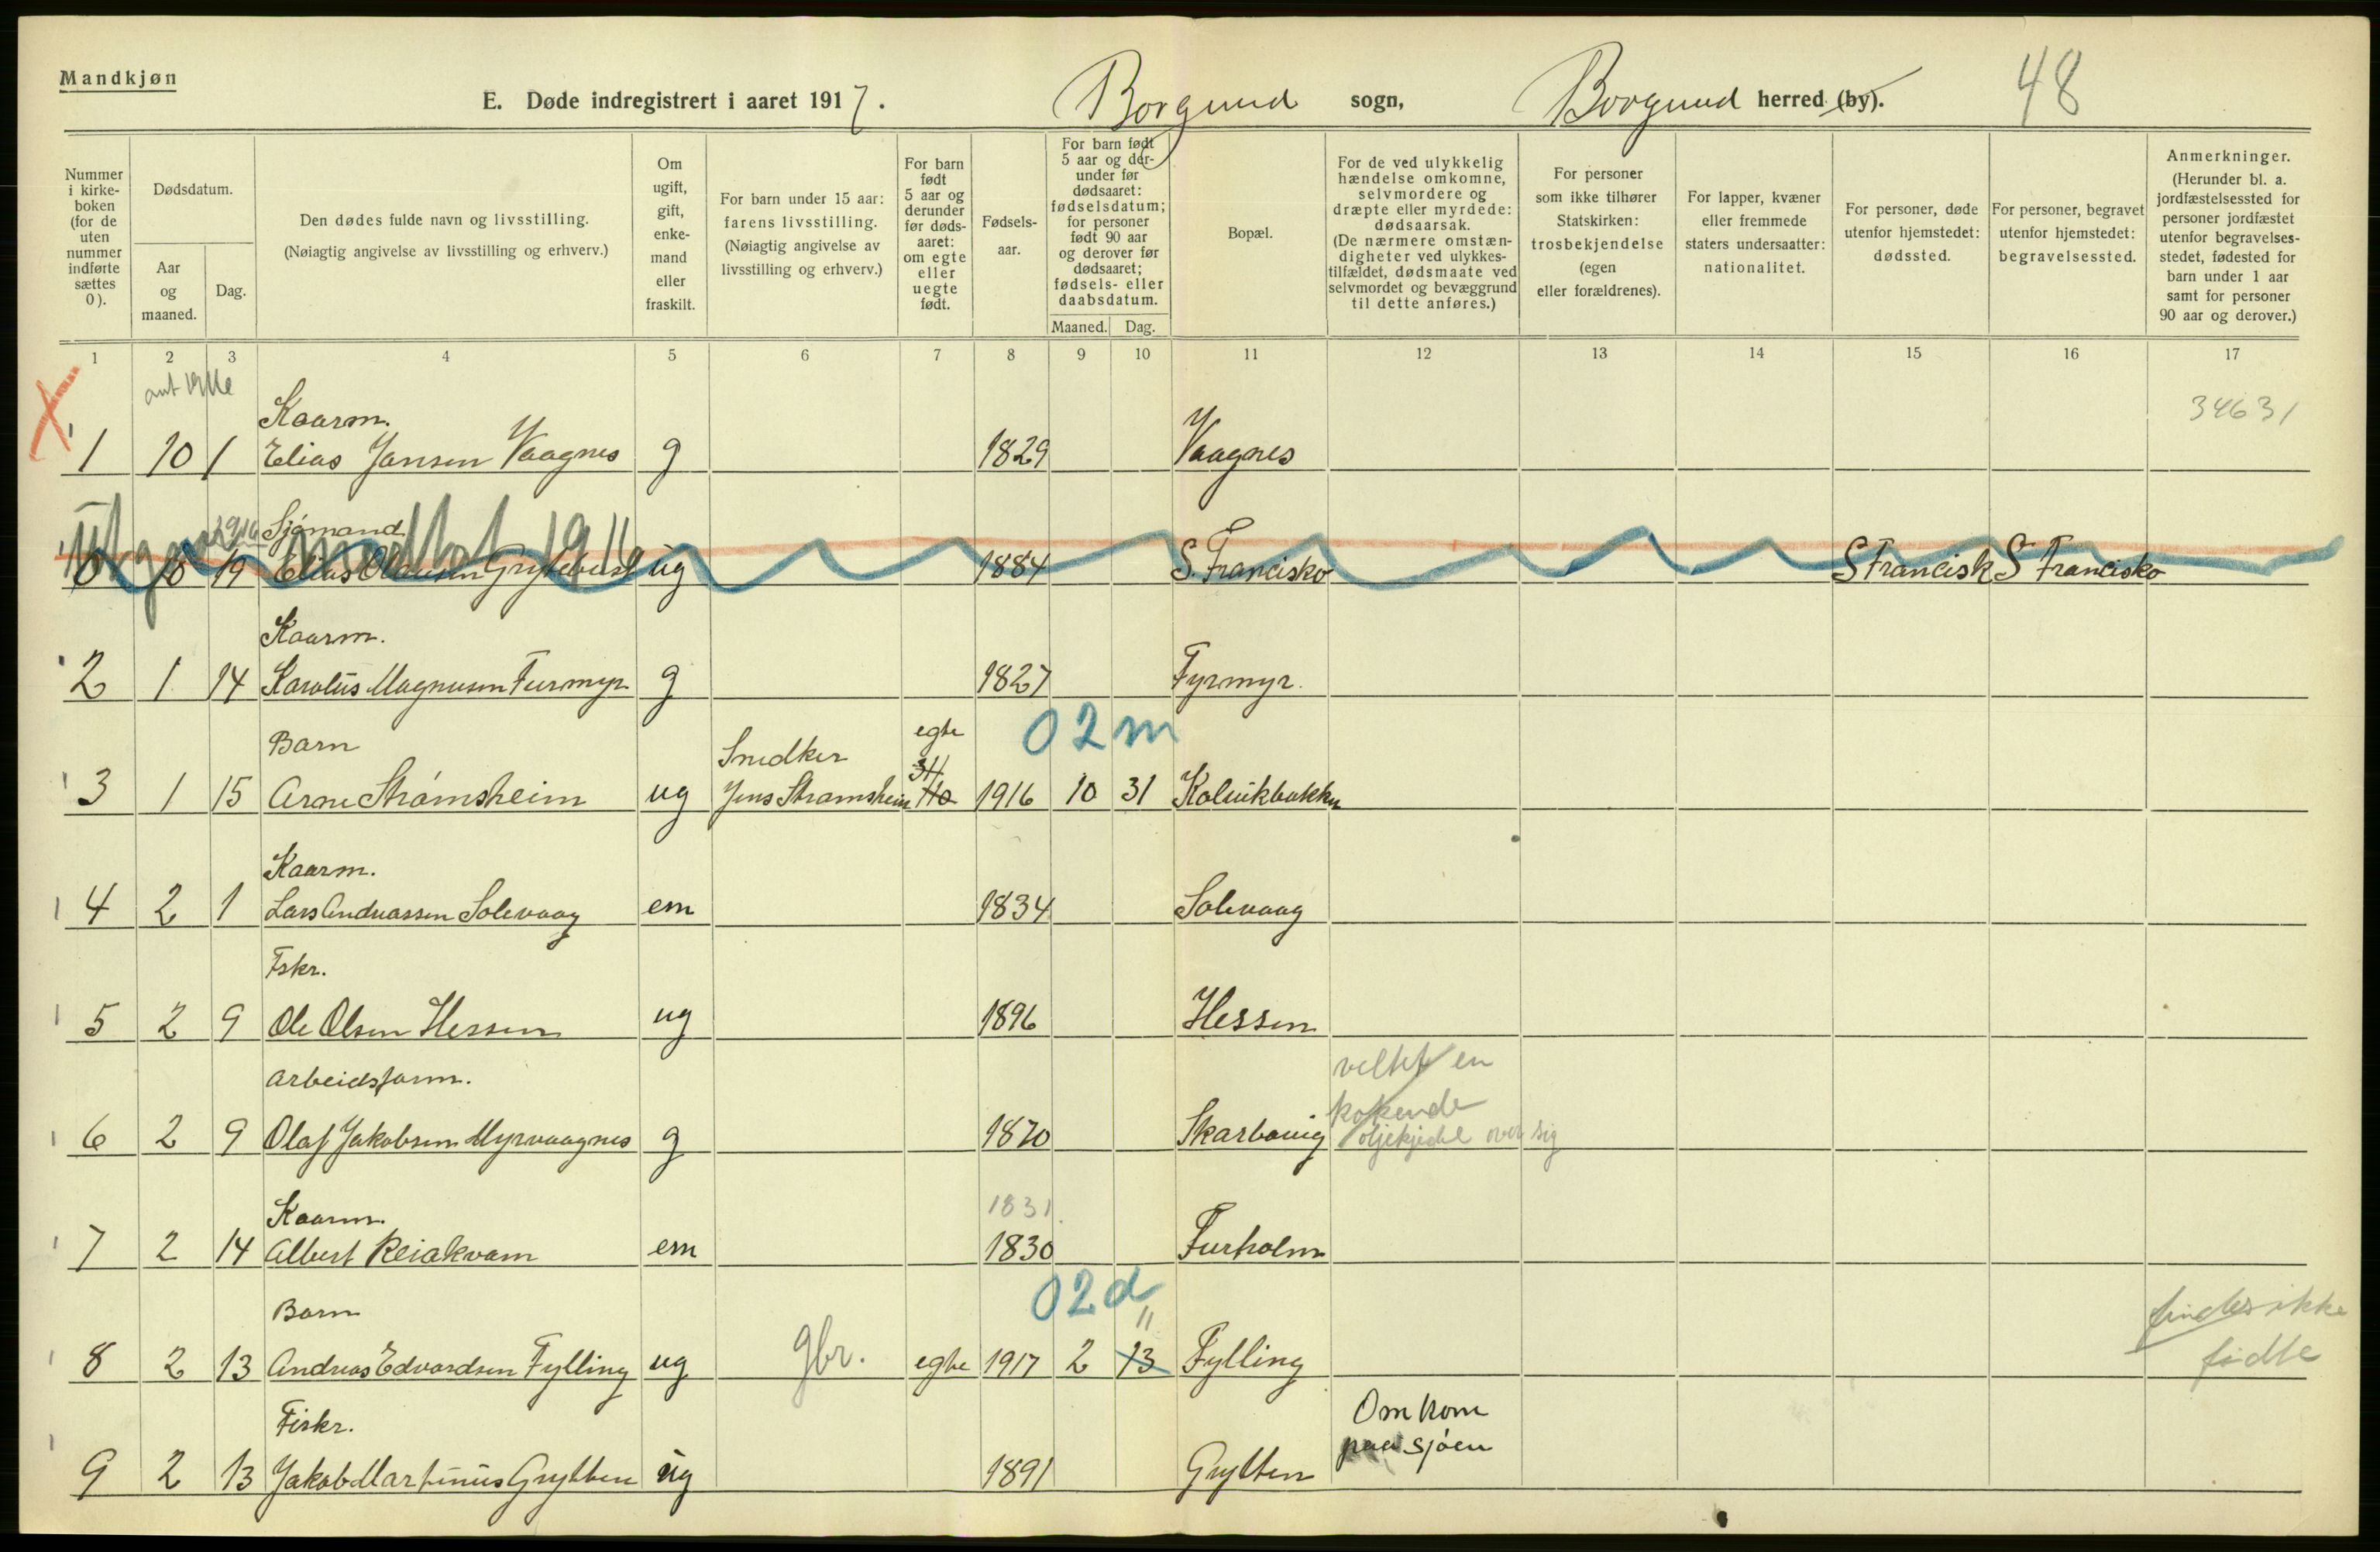 Mandkjøn
E. Døde indregistrert i aaret 1917. Borgund sogn, Borgund herred (by). 48
Nummer i kirke-boken (for de uten nummer indførte sættes 0).
Dødsdatum.
Aar og maaned.
Dag.
Den dødes fulde navn og livsstilling.
(Nøiagtig angivelse av livsstilling og erhverv.)
Om ugift, gift, enke-mand eller fraskilt.
For barn under 15 aar: farens livsstilling. (Nøiagtig angivelse av livsstilling og erhverv.)
For barn født 5 aar og derunder før døds-aaret: om egte eller uegte født.
Fødsels-aar.
For barn født 5 aar og der-under før dødsaaret: fødselsdatum; for personer født 90 aar og derover før dødsaaret; fødsels- eller daabsdatum.
Maaned. Dag.
Bopæl.
For de ved ulykkelig hændelse omkomne, selvmordere og dræpte eller myrdede: dødsaarsak. (De nærmere omstæn-digheter ved ulykkes-tilfældet, dødsmaate ved selvmordet og bevæggrund til dette anføres.)
For personer som ikke tilhører Statskirken: trosbekjendelse (egen eller forældrenes).
For lapper, kvæner eller fremmede staters undersaatter: nationalitet.
For personer, døde utenfor hjemstedet: dødssted.
For personer, begravet utenfor hjemstedet: begravelsessted.
Anmerkninger. (Herunder bl. a. jordfæstelsessted for personer jordfæstet utenfor begravelses-stedet, fødested for barn under 1 aar samt for personer 90 aar og derover.)
1 2 3 4 5 6 7 8 9 10 11 12 13 14 15 16 17
Kaarm. 34631
1 10 1 Elias Jansen Vaagnes g 1829 Vaagnes
1916 Sjómand
0 10 19 Elias ug 1884 S. Francisko S Francisk S Francisko
Kaarm.
2 1 14 Karolus Magnusen Furmyr g 1827 Fyrmyr.
Barn Snedker egte 02m
3 1 15 Arne Strómsheim ug Jens Stramsheim 1916 10 31 Kolvikbakken
Kaarm.
4 2 1 Lars Andreassen Solevaag em 1834 Solevaag
Fskr.
5 2 9 Ole Olsen Hessen ug 1896 Hessen
Arbeidsform. veltet en kokende
6 2 9 Olaf Jakobsen Myrvaagnes g 1870 Skarbøvig oljekjedel over sig
Kaarm. 1831
7 2 14 Albert Reiakvam em 1830 Furholm
Barn 02d 11 findes ikke
8 2 13 Andreas Edvardsen Fylling ug gbr. egte 1917 2 13 Fylling fødte
Fiskr. Omkom paa sjóen
9 2 13 Jakob Martinus Grytten ug 1891 Grytten